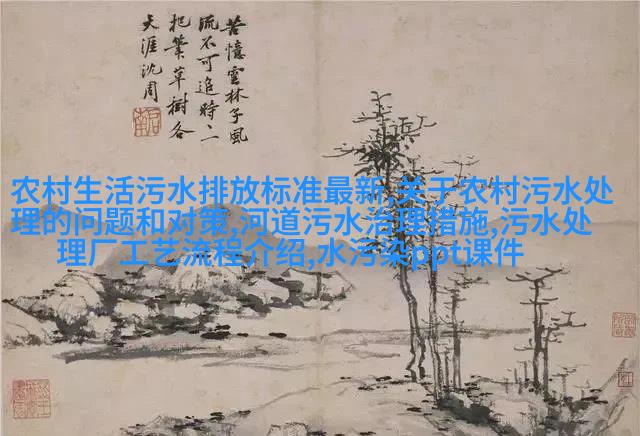 苦憶雲林子風
流不可追時二
把筆草樹各
天涯沈周
农村生活污水排放标准最新,关于农村污水处
理的问题和对策,河道污水治理措施,污水处
理厂工艺流程介绍,水污染ppt课件